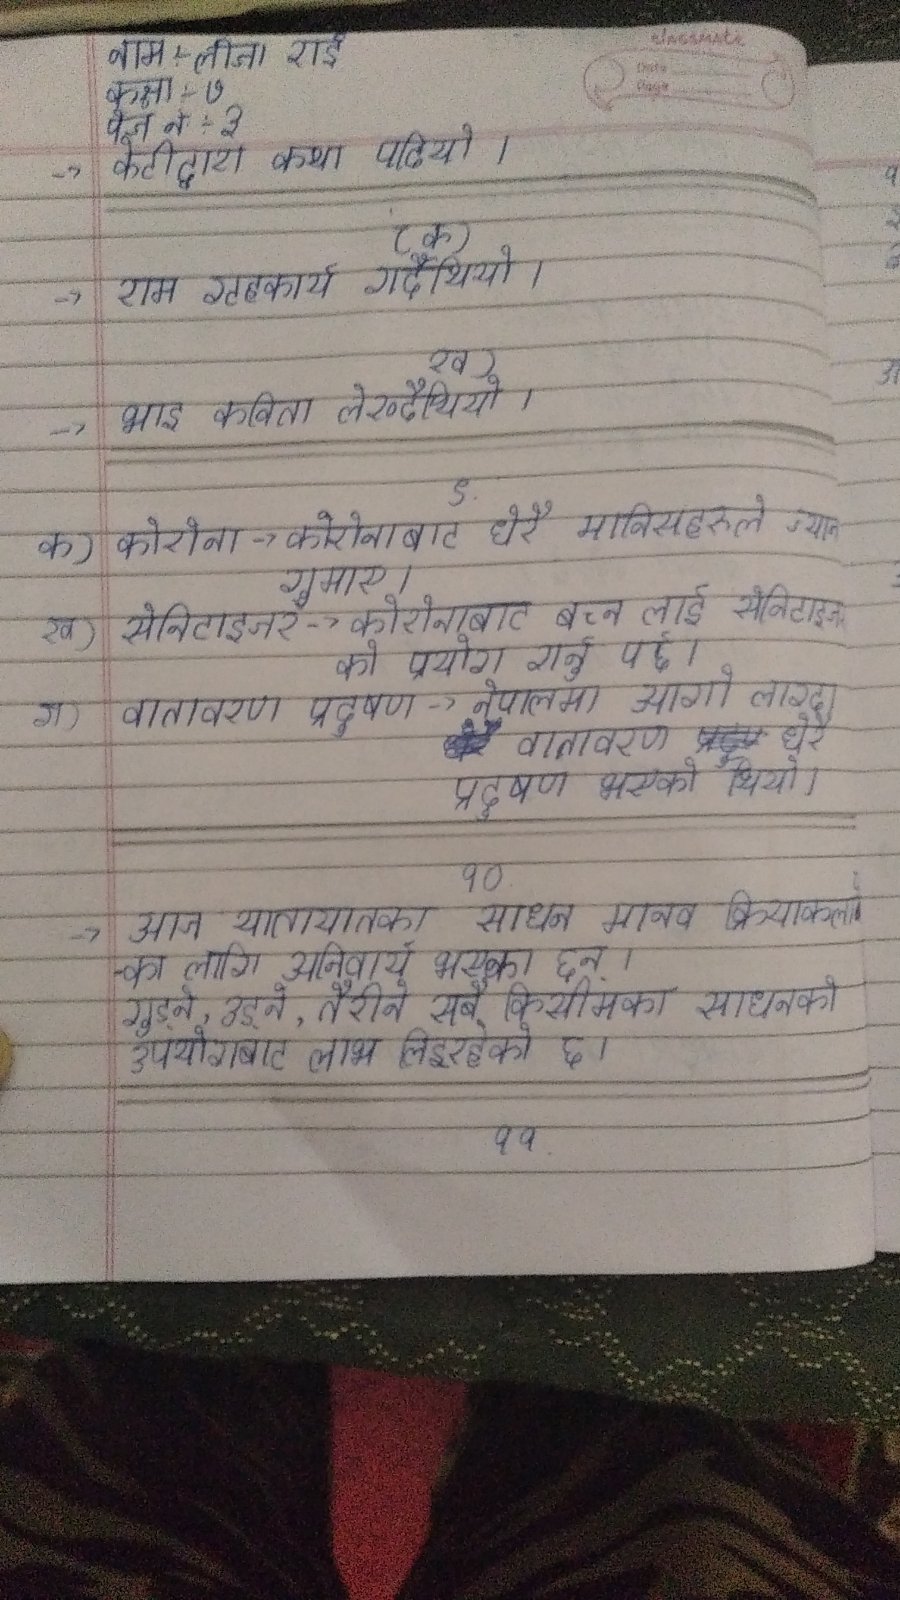 classmate
Date
Page
नाम :- लीजा राई
कक्षा :- ७
पेज नं :- ३
→ केटीद्वारा कथा पढियो ।
(क)
→ राम गृहकार्य गर्दैथियो ।
ख)
→ भाइ कविता लेख्दैथियो ।
९.
क) कोरोना → कोरोनाबाट धेरै मानिसहरुले ज्यान
गुमाए ।
ख) सेनिटाइजर → कोरोनाबाट बच्न लाई सेनिटाइजर
को प्रयोग गर्नु पर्छ ।
ग) वातावरण प्रदुषण → नेपालमा आगो लाग्दा
वातावरण धेरै
प्रदुषण भएको थियो ।
१०
→ आज यातायातका साधन मानव क्रियाकलाप
का लागि अनिवार्य भएका छन् ।
गुड्ने, उड्ने, तैरीने सबै किसीमका साधनको
उपयोगबाट लाभ लिइरहेको छ ।
११.